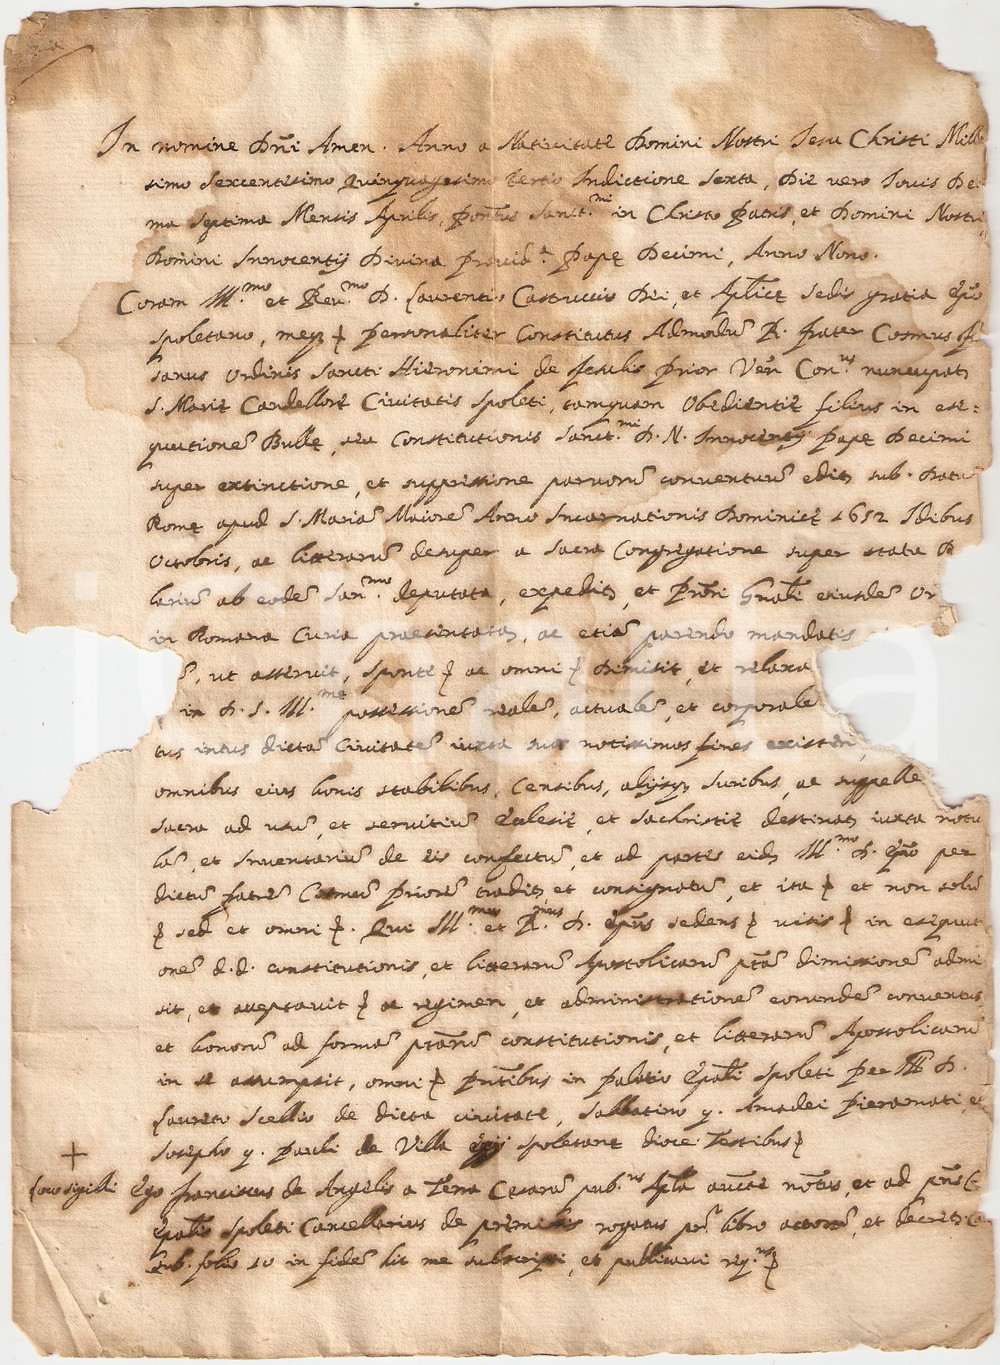 In nomine Dñi Amen. Anno a Nativitate Domini Nostri Iesu Christi Mille
simo sexcentesimo quinquagesimo tertio Indictione sexta, Die vero Iovis De
ma septima Mensis Aprilis, Pontus Sanct.mi in Christo Patris, et Domini Nostri,
Domini Innocentij Divina Provid.a Papę Decimi, Anno Nono.
Coram Ill.mo et Rev.mo D. Laurentio Castruccio Dei, et Aplicę Sedis gratia Epo
Spoletano, meq personaliter Constitutus Admodu R. frater Cosmus
sanus Ordinis Sancti Hieronimi de Fesulis Prior Ven Con.us nuncupati
S. Marię Candellorę Civitatis Spoleti, tamquam Obedientię filius in exe=
quutione Bullę, seu Constitutionis Sanct.mi D. N. Innocentij Papę Decimi
super extinctione, et suppressione parvoru conventuu edit sub Datu
Romę apud S. Maria Maiore Anno Incarnationis Dominicę 1652 Idibus
Octobris, ac litteraru desuper a Sacra Congregatione super statu
lariu ab eode San.mo deputata, expedit, et Pñri Gnali eiusde Or
in Romana Curia praesentata, ac etia parendo mandatis
, ut asseruit, sponte ac omni Dimisit, et relaxa
in D. S. Ill.me possessione reale, actuale, et corporale
tus intus dicta Civitate iuxta suos notissimos fines existen
omnibus eius bonis stabilibus, Censibus, alijsq Iuribus, ac suppelle
sacra ad usu, et servitiu Ecclesię, et sachristię destinat iuxta notu
la, et Inventariu de eis confectu, et ad partes eid Ill.mo D. Epo per
dictu fatre Cosmu Priore tradit et consignatu, et ita et non solu
sed et omni. Qui Ill.mus et R.mus D. Epus sedens visis in exequut
one d.d. constitutionis, et litteraru Apostolicaru pta dimissione admi
sit, et acceptavit ac regimen, et administratione eorunde conventus
et bonoru ad forma ptaru constitutionis, et litteraru Apostolicaru
in se assumpsit, omni Pntibus in Palatio Epali Spoleti Per Ill D.
Laureto Scellio de dicta civitate, Sabbatino q. Amadei Pieramati, et
Iosepho q. Pauli de Villa Spoletanę dioce. Testibus
+
Loco sigilli Ego Franciscus de Angelis a Terra Cesaru pub.us Apla aucte notus, et ad pns
Epalis Spoleti Cancellarius de premissis rogatus pr libro actoru, et decret
sub folio 10 in fide hic me subscripsi, et publicavi req.us